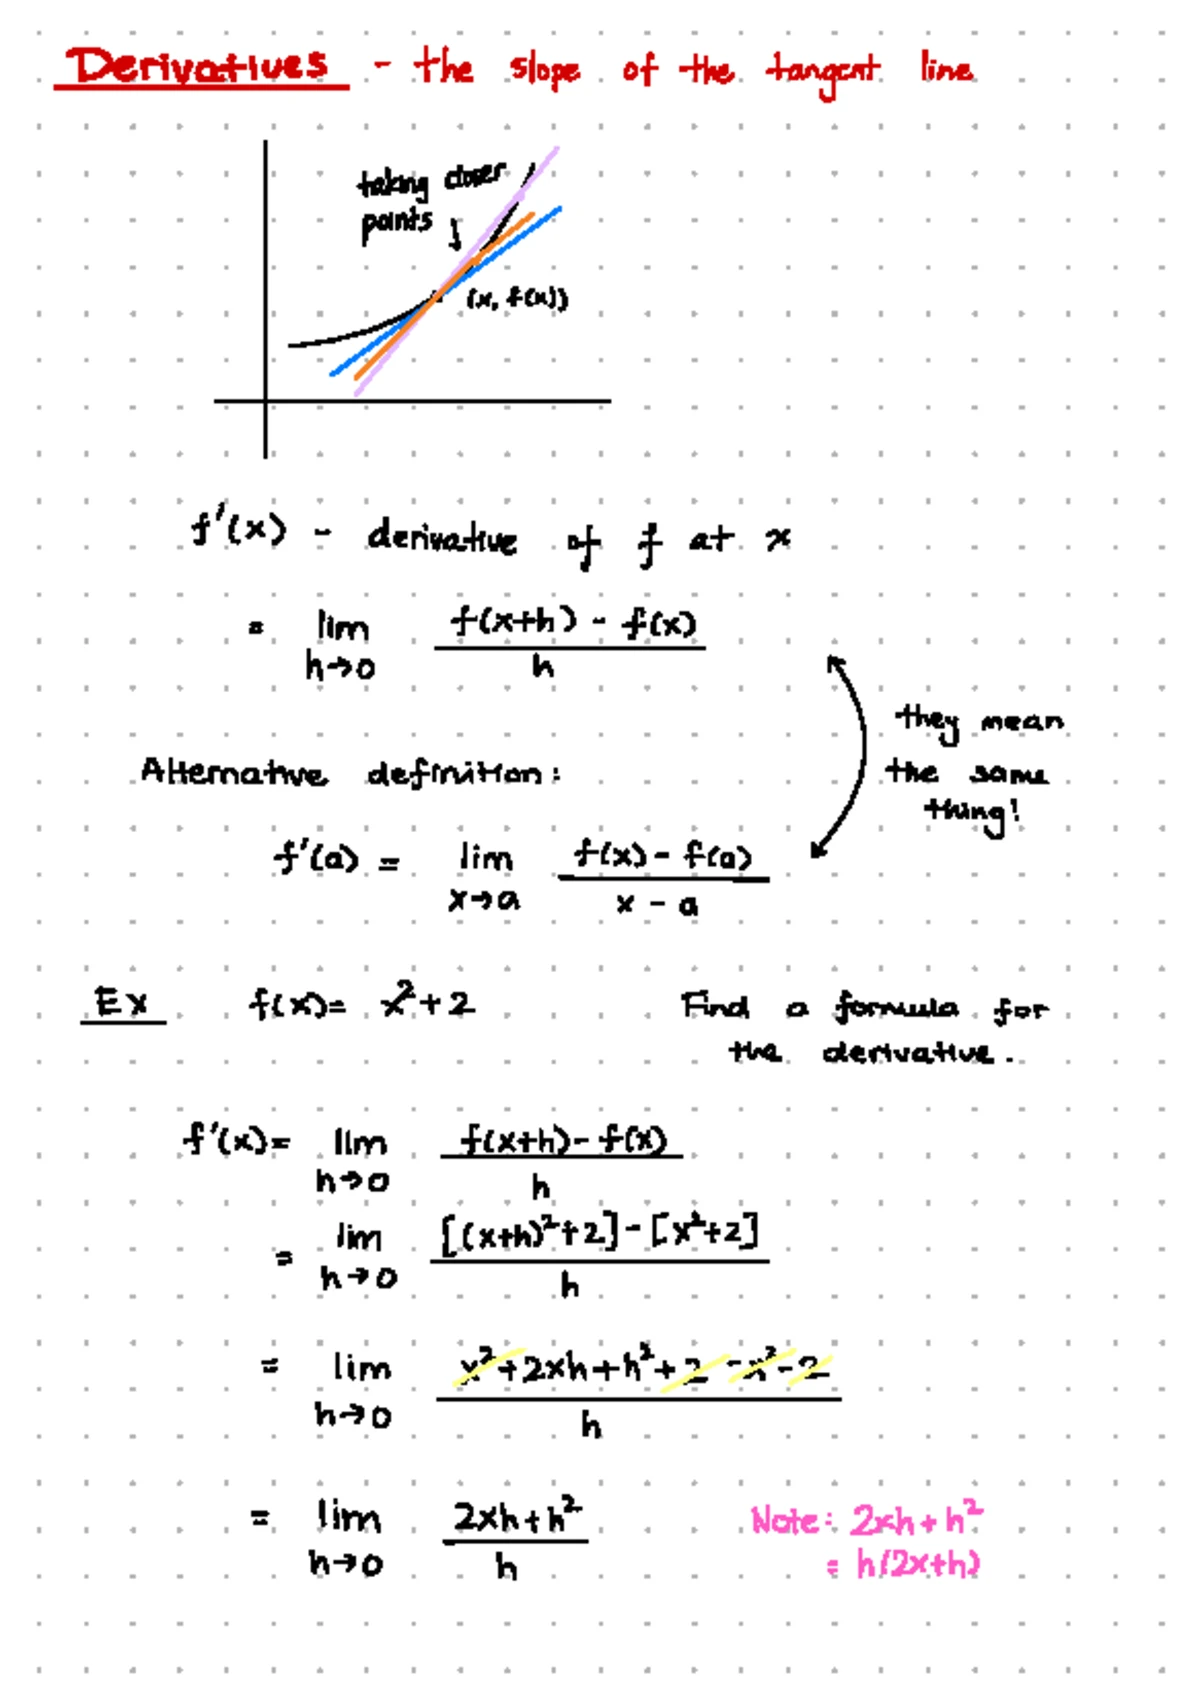 Derivatives - the slope of the tangent line
taking closer
points
(x, f(x))
f'(x) - derivative of f at x
= lim f(x+h) - f(x)
h→0 h
they mean
the same
thing!
Alternative definition:
f'(a) = lim f(x) - f(a)
x→a x - a
Ex f(x) = x²+2 Find a formula for
the derivative.
f'(x) = lim f(x+h) - f(x)
h→0 h
= lim [(x+h)²+2] - [x²+2]
h→0 h
= lim x²+2xh+h²+2-x²-2
h→0 h
= lim 2xh+h²
h→0 h
Note: 2xh+h²
= h(2x+h)